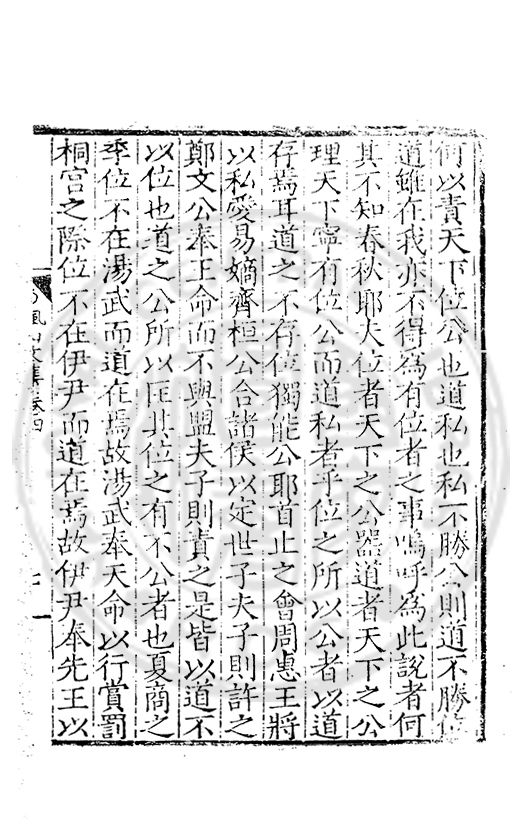 何以責天下位公也道私也私不勝公則道不勝位
道雖在我亦不得為有位者之事嗚呼為此說者何
其不知春秋耶夫位者天下之公器道者天下之公
理天下寧有位公而道私者乎位之所以公者以道
存焉耳道之不存位獨能公耶首止之會周惠王將
以私愛易嫡齊桓公合諸侯以定世子夫子則許之
鄭文公奉王命而不與盟夫子則責之是皆以道不
以位也道之公所以匡其位之有不公者也夏商之
季位不在湯武而道在焉故湯武奉天命以行賞罰
桐宮之際位不在伊尹而道在焉故伊尹奉先王以
風山文集卷四